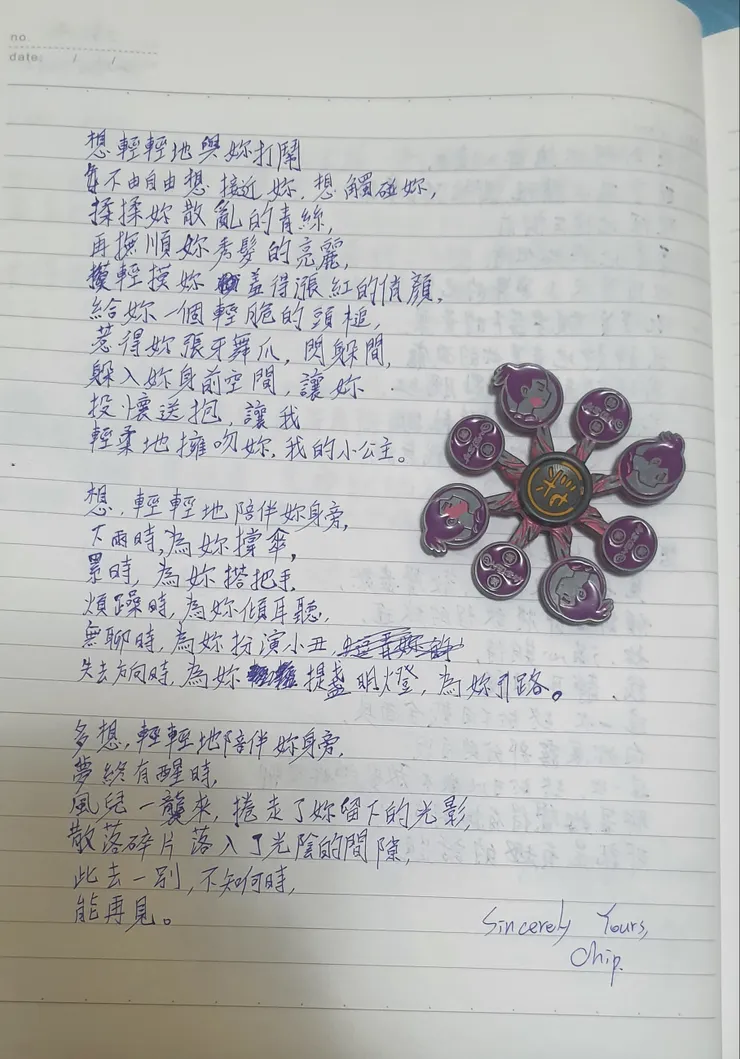 no.
date: / /
想輕輕地與妳打鬧
不由自由想接近妳，想觸碰妳，
揉揉妳散亂的青絲，
再撫順妳秀髮的亮麗，
輕摸妳羞得漲紅的俏顏，
給妳一個輕脆的頭槌，
惹得妳張牙舞爪，閃躲間，
躲入妳身前空間，讓妳
投懷送抱，讓我
輕柔地擁吻妳，我的小公主。
想，輕輕地陪伴妳身旁，
下雨時，為妳撐傘，
累時，為妳搭把手，
煩躁時，為妳傾耳聽，
無聊時，為妳扮演小丑，
失去方向時，為妳提盞明燈，為妳引路。
多想，輕輕地陪伴妳身旁，
夢終有醒時，
風兒一襲來，捲走了妳留下的光影，
散落碎片落入了光陰的間隙，
此去一別，不知何時，
能再見。
Sincerely Yours,
Chip.